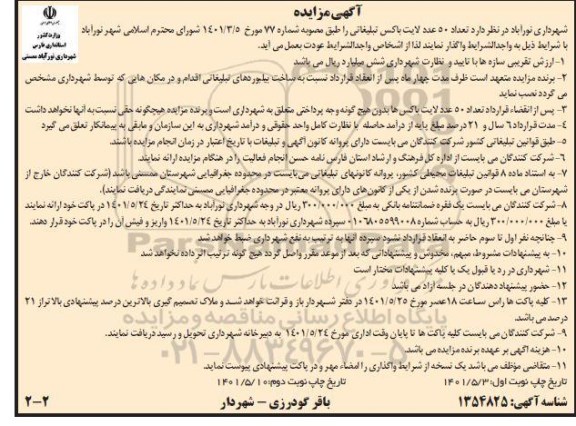 آگهی مزایده
وزارت کشور
استانداری فارس
شهرداری نورآباد ممسنی
شهرداری نورآباد در نظر دارد تعداد ۵۰ عدد لایت باکس تبلیغاتی را طبق مصوبه شماره ۷۷ مورخ ۱۴۰۱/۳/۵ شورای محترم اسلامی شهر نورآباد
با شرایط ذیل به واجدالشرایط واگذار نمایند لذا از اشخاص واجدالشرایط عودت بعمل می آید.
۱- ارزش تقریبی سازه ها با تایید و نظارت شهرداری شش میلیارد ریال می باشد
۲- برنده مزایده متعهد است ظرف مدت چهار ماه پس از انعقاد قرارداد نسبت به ساخت بیلبوردهای تبلیغاتی اقدام و در مکان هایی که توسط شهرداری مشخص
می گردد نصب نماید
۳- پس از انقضاء قرارداد تعداد ۵۰ عدد لایت باکس ها بدون هیچ گونه وجه پرداختی متعلق به شهرداری است و برنده مزایده هیچگونه حقی نسبت به آنها نخواهد داشت
۴- مدت قرارداد ۶ سال و ۲۱ درصد مبلغ پایه از درآمد حاصله با نظارت کامل واحد حقوقی و درآمد شهرداری به این سازمان و مابقی به پیمانکار تعلق می گیرد
۵- طبق قوانین تبلیغاتی کشور شرکت کنندگان می بایست دارای پروانه کانون آگهی و تبلیغات با تاریخ اعتبار در زمان انجام مزایده باشند.
۶- شرکت کنندگان می بایست از اداره کل فرهنگ و ارشاد استان فارس نامه حسن انجام فعالیت را در هنگام مزایده ارائه نمایند.
۷- به استناد ماده ۸ قوانین تبلیغات محیطی کشور، پروانه کانونهای تبلیغاتی می بایست در محدوده جغرافیایی شهرستان ممسنی باشد (شرکت کنندگان خارج از
شهرستان می بایست در صورت برنده شدن از یکی از کانون های دارای پروانه معتبر در محدوده جغرافیایی ممسنی نمایندگی دریافت نمایند).
۸- شرکت کنندگان می بایست یک فقره ضمانتنامه بانکی به مبلغ ۳۰۰/۰۰۰/۰۰۰ ریال در وجه شهرداری نورآباد به حداکثر تاریخ ۱۴۰۱/۵/۲۴ در پاکت خود ارائه نمایند
یا مبلغ ۳۰۰/۰۰۰/۰۰۰ ریال به حساب شماره ۰۱۰۶۸۰۵۵۹۹۰۰۸ سپرده شهرداری نورآباد به حداکثر تاریخ ۱۴۰۱/۵/۲۴ واریز و فیش آن را در پاکت خود قرار دهند.
۹- چنانچه نفر اول تا سوم حاضر به انعقاد قرارداد نشود سپرده آنها به ترتیب به نفع شهرداری ضبط خواهد شد
۱۰- به پیشنهادات مشروط، مبهم، مخدوش و پیشنهاداتی که بعد از موعد مقرر واصل گردد هیچ گونه ترتیب اثر داده نخواهد شد
۱۱- شهرداری در رد یا قبول یک یا کلیه پیشنهادات مختار است
۱۲- حضور پیشنهاد دهندگان در جلسه آزاد می باشد
۱۳- کلیه پاکت ها راس ساعت ۱۸ عصر مورخ ۱۴۰۱/۵/۲۵ در دفتر شهردار باز و قرائت خواهد شد و ملاک تصمیم گیری بالاترین درصد پیشنهادی بالاتر از ۲۱
درصد می باشد.
۹- شرکت کنندگان می بایست کلیه پاکت ها تا پایان وقت اداری مورخ ۱۴۰۱/۵/۲۴ به دبیرخانه شهرداری تحویل و رسید دریافت نمایند.
۱۰- هزینه آگهی بر عهده برنده مزایده می باشد.
۱۱- متقاضی مؤظف می باشد یک نسخه از شرایط واگذاری را امضاء مهر و در پاکت پیشنهادی پیوست نماید.
تاریخ چاپ نوبت اول: ۱۴۰۱/۵/۳ تاریخ چاپ نوبت دوم: ۱۴۰۱/۵/۱۰
شناسه آگهی: ۱۳۵۴۸۲۵ باقر گودرزی – شهردار ۲-۲
پایگاه اطلاع رسانی مناقصه و مزایده
۰۲۱-۸۸۳۴۹۶۷۰-۵